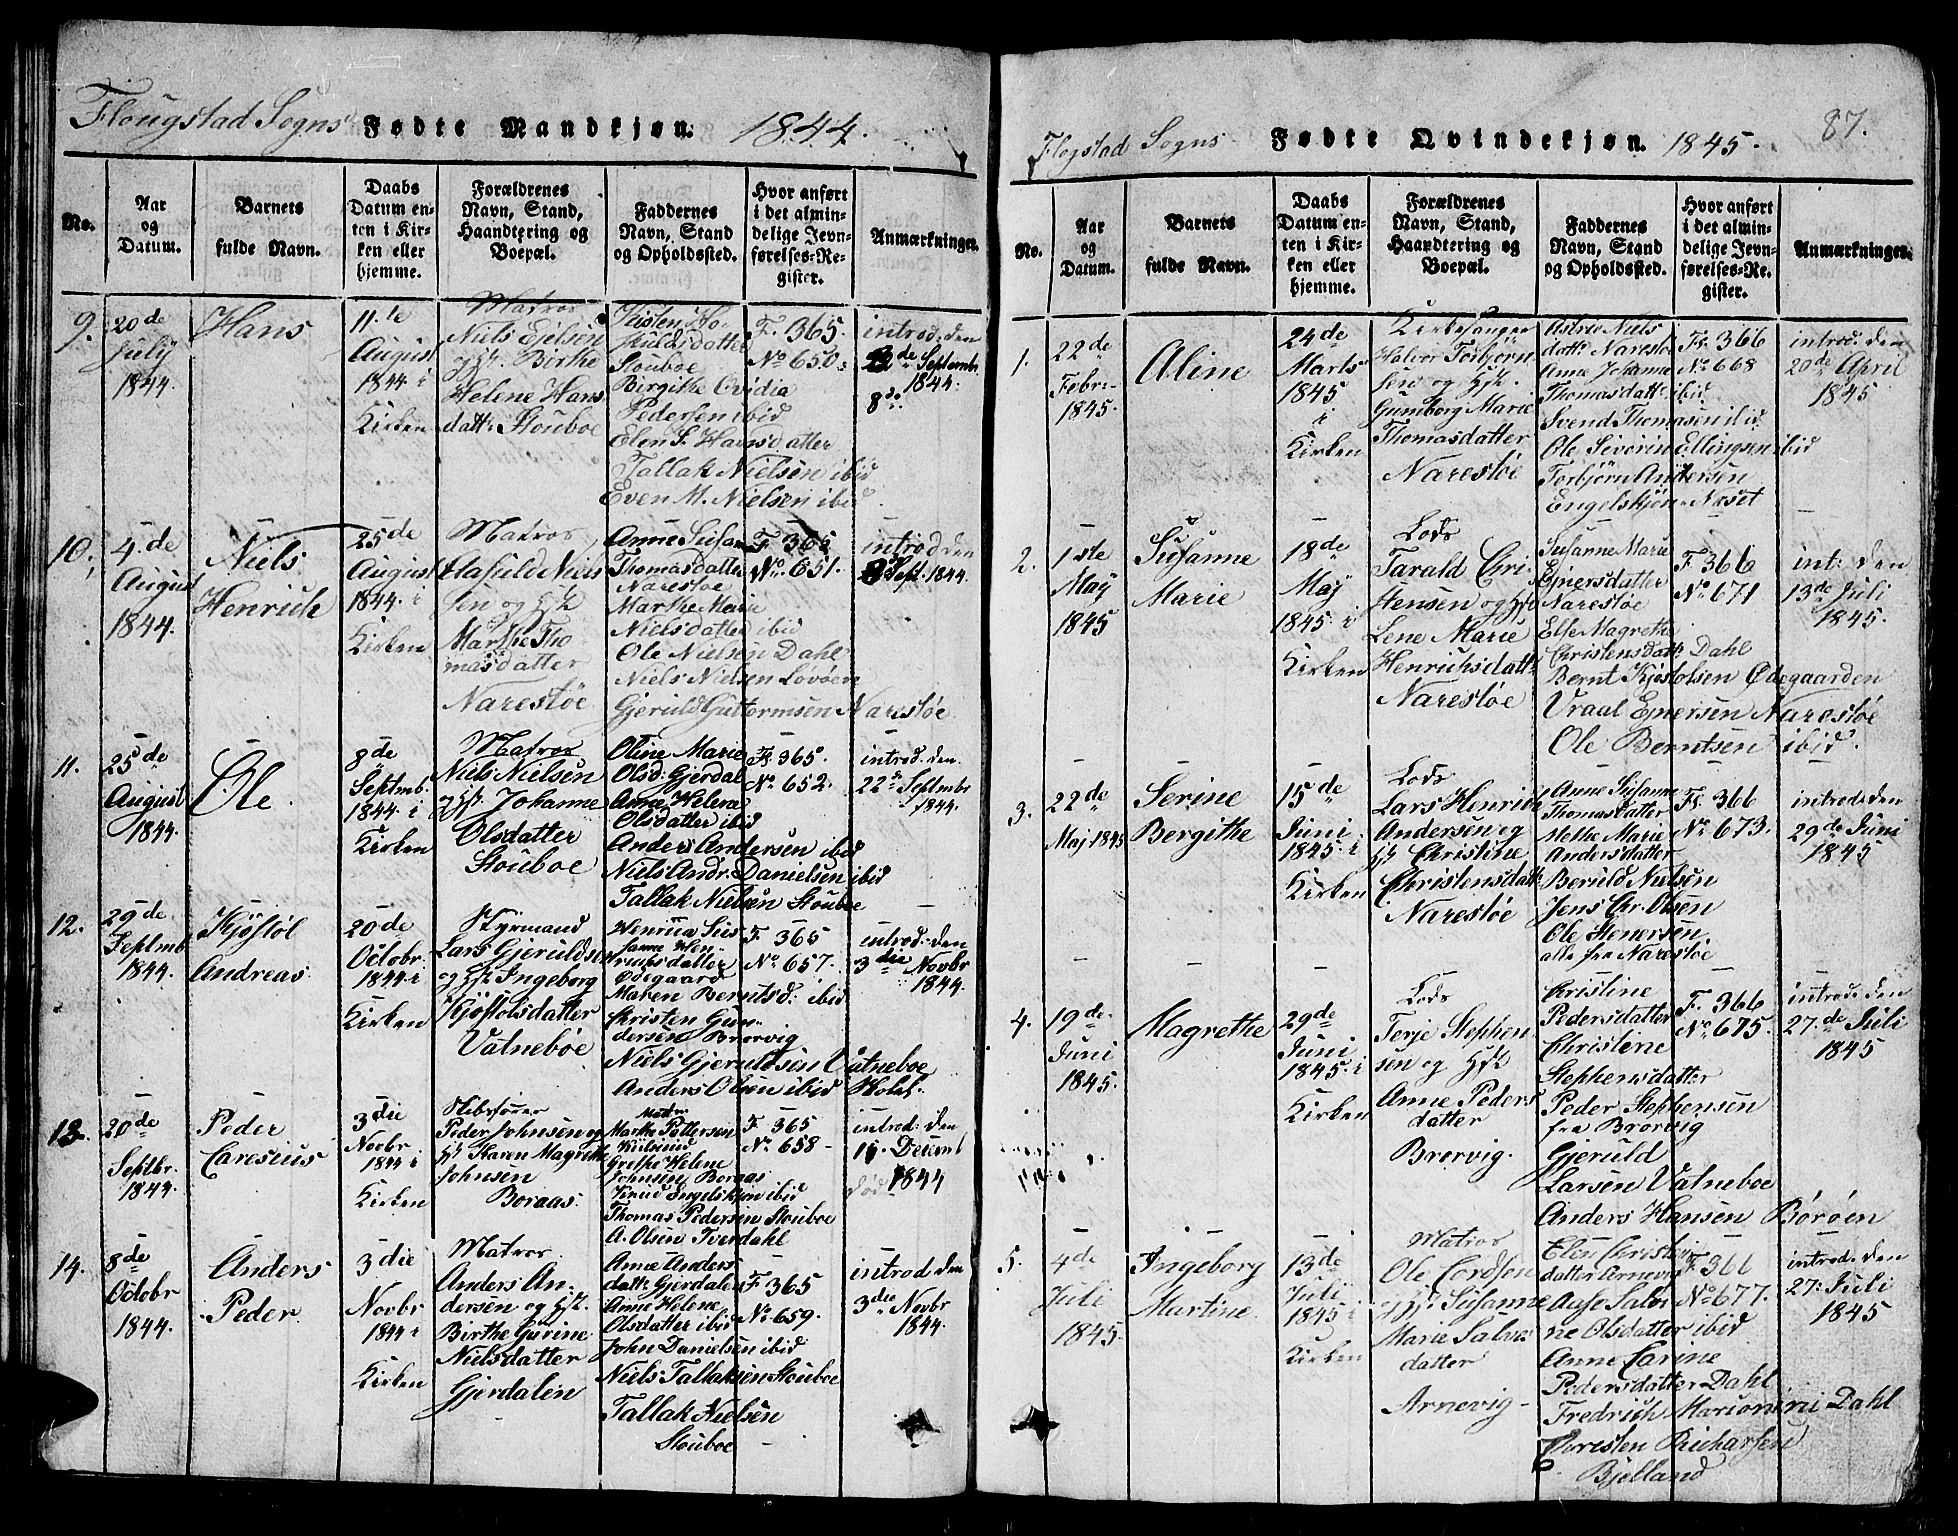 Flougstad Sogns Fødte Mandkjøn. 1844.
No.
Aar
og
Datum.
Barnets
fulde Navn.
Daabs
Datum en-
ten i Kir-
ken eller
hjemme.
Forældrenes
Navn, Stand,
Haandtering og
Boepæl.
Faddernes
Navn, Stand
og Opholdssted.
Hvor anført
i det almin-
delige Jevn-
førelses-Re-
gister.
Anmærkninger.
9.
20de
July
1844.
Hans
11.te
August
1844 i
Kirken
Matros
Niels Ejelsen
Birthe
Helene Hans
datt: Stouboe
Skuldsdatter
Stouboe
Bergithe Ovidia
Pedersen ibid
Elen S. Hansdatter
Tallak Nielsen ibid
Even M. Nielsen ibid.
F. 365.
No 650.
introd. den
Septembr
1844.
8de
10.
4.de
August
1844.
Niels
Henrich
25de
August
1844. i
Kirken
Matros
Niels
sen og
Marthe Tho-
masdatter
Narestøe
Anne Susan
Thomasdatter
Narestøe
Marthe Marie
Nielsdatter ibid
Ole Nielsen Dahl
Niels Nielsen Lovøen
Gjeruld Guttormsen Narestøe.
F. 365
No. 651.
introd den
8 Sept. 1844.
11.
25de
August
1844.
Ole.
8de
Septmb.
1844 i
Kirken
Matros
Niels Nielsen
Johanne
Olsdatter
Stouboe
Oline Marie
Olsd: Gjerdal
Anne Helene
Olsdatter ibid
Anders Andersen ibid
Niels Andr. Danielsen ibid
Tallak Nielsen Stouboe
Fl. 365.
No. 652.
introd. den.
22de Septmbr
1844.
12.
29de
Septmb
1844.
Kjøstol
Andreas
20de
Octobr.
1844 i
Kirken
Styrmand
Lars Gjerulds
og Ingeborg
Kjøstolsdatter
Vatneboe
Henrica Sus
sanne Hen-
richsdatter
Odegaard
Maren Berntsd: ibid
Christen Gun-
dersen Brørvig
Niels Gjeruldsen Vatneboe
Anders Olsen ibid Holst.
F. 365
No. 657.
introd: den
3die Novbr
1844.
13.
20de
Septbr.
1844.
Peder
Caresius
3die
Novbr
1844 i
Kirken
Skibsfører
Peder Johnsen og
Karen Magrethe
Johnsen
Boraas.
Marthe Pettersen
Grethe Helene
Johnsen Boraas
Knud Engelskjøn ibid
Thomas Pedersen Stouboe
A. Olsen Tverdahl
F. 365
No. 658
introd: den
Decemb
1844
14.
8de
Octobr
1844.
Anders
Peder
3die
Novbr
1844 i
Kirken
Matros
Anders An-
dersen og
Birthe Gurine
Nielsdatter
Gjerdalen
Anne Anders
datt: Gjerdalen
Anne Helene
Olsdatter ibid
John Danielsen ibid
Niels Tallaksen Stouboe
Tallak Nielsen
Stouboe
F. 365
No. 659.
introd den
3die Novbr
1844.
87.
Flogstad Sogns Fødte Qvindekjøn. 1845.
No.
Aar
og
Datum.
Barnets
fulde Navn.
Daabs
Datum en-
ten i Kir-
ken eller
hjemme.
Forældrenes
Navn, Stand,
Haandtering og
Boepæl.
Faddernes
Navn, Stand
og Opholdssted.
Hvor anført
i det almin-
delige Jevn-
førelses-Re-
gister.
Anmærkninger.
1.
22de
Febr.
1845.
Aline
24de
Marts
1845
i
Kirken
Kirkesanger
Halvor Torbjørn
sen og
Gumborg Marie
Thomasdatter
Narestøe
Astrid Niels
datt: Narestøe
Anne Johanne
Thomasdatt: ibid
Svend Thomasen ibid
Ole Siverin Ellingsen ibid
Torbjørn Andersen
Engelskjøn Næset
Fl. 366
No. 668
introd: den
20de April
1845
2.
1ste
Maj
1845
Susanne
Marie
18de
Maj
1845. i
Kirken
Lods
Tarald Chri-
stensen og
Lene Marie
Henrichsdatt:
Narestøe
Susanne Marie
Ejnersdatter
Narestøe
Else Magrethe
Christensdatt: Dahl
Bernt Kjøstolsen Ødegaarden
Vraal Ejnersen Narestøe
Ole Berntsen ibid.
F. 366
No. 671
int: den
13de Juli
1845.
3.
22de
Maj 1845
Serine
Bergithe
15de
Juni
1845. i
Kirken
Lods
Lars Henrik
Andersen og
Christine
Christensdatt
Narestøe
Anne Susanne
Thomasdatter
Methe Marie
Andersdatter
Beruld Nielsen
Jens Chr. Olsen
Ole Stenersen
alle fra Narestøe
Fl. 366
No. 673.
introd: den
29de Juni
1845
4.
19de
Juni
1845.
Magrethe
29de
Juni
1845. i
Kirken
Lods
Terje Stephen
sen og
Anne Peders
datter
Brørvig.
Christine
Pedersdatter
Christine
Stephensdatter
Peder Stephensen
fra Brørvig
Gjeruld
Larsen Vatneboe
Anders Hansen Børøen
F. 366
No. 675.
introd: den
27.de Juli
1845
5.
4de
Juli
1845.
Ingeborg
Martine
13de
Juli
1845 i
Kirken
Matros
Ole Cordsen
Susanne
Marie Salve
datter
Arnevig
Elen Christen
datter Arnevig
Aase Salvi
ne Olsdatter ibid
Anne Carine
Pedersdatter Dahl
Fredrich Marionini Dahl
Toresten Richarsen
Bjelland
F. 366
No. 677.
introd: den
27: Juli
1845